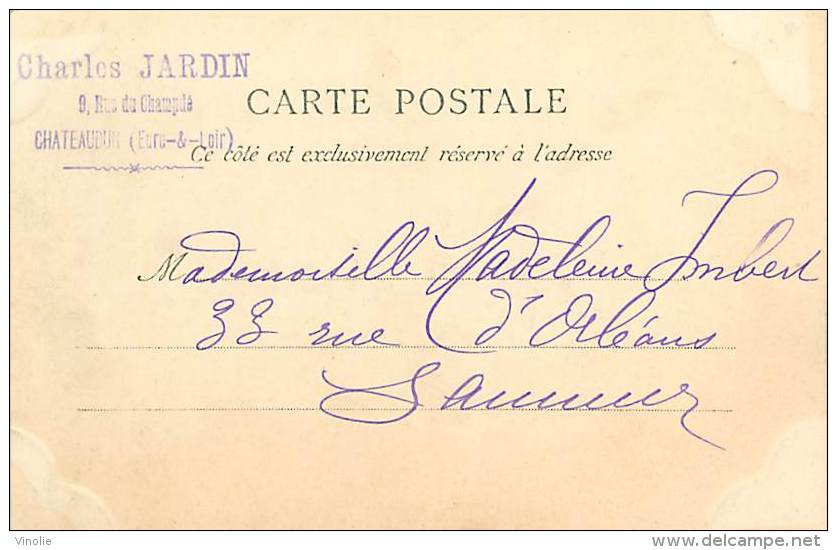 Charles JARDIN
9, Rue du Champdé
CHATEAUDUN (Eure-&-Loir)
CARTE POSTALE
Ce côté est exclusivement réservé à l'adresse
Mademoiselle Madeleine Imbert
33 rue d'Orléans
Saumur
Vinolie
delcampe.net